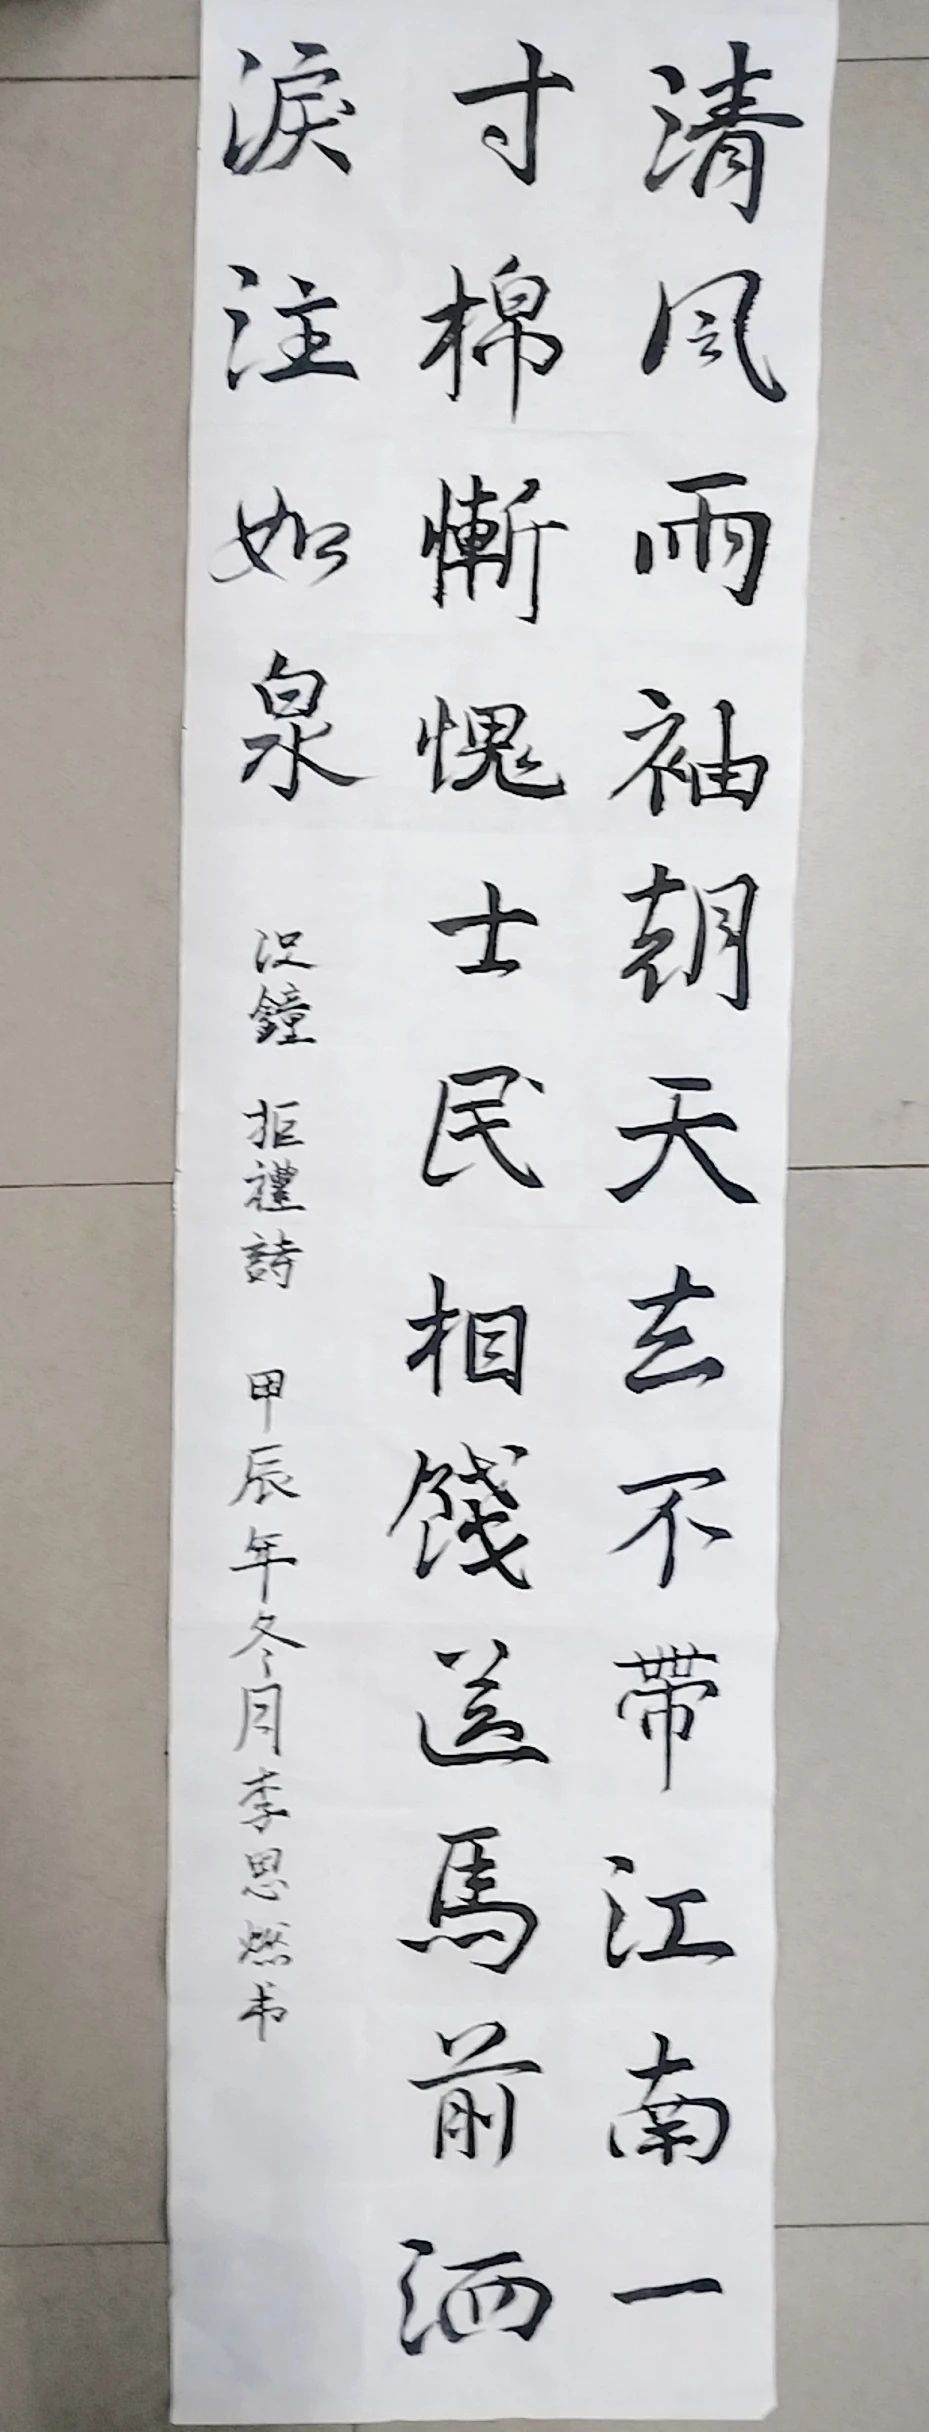 清風雨袖朝天去不帶江南一
寸棉慚愧士民相餞送馬前洒
淚注如泉
况鐘 拒禮詩 甲辰年冬月李思燃书